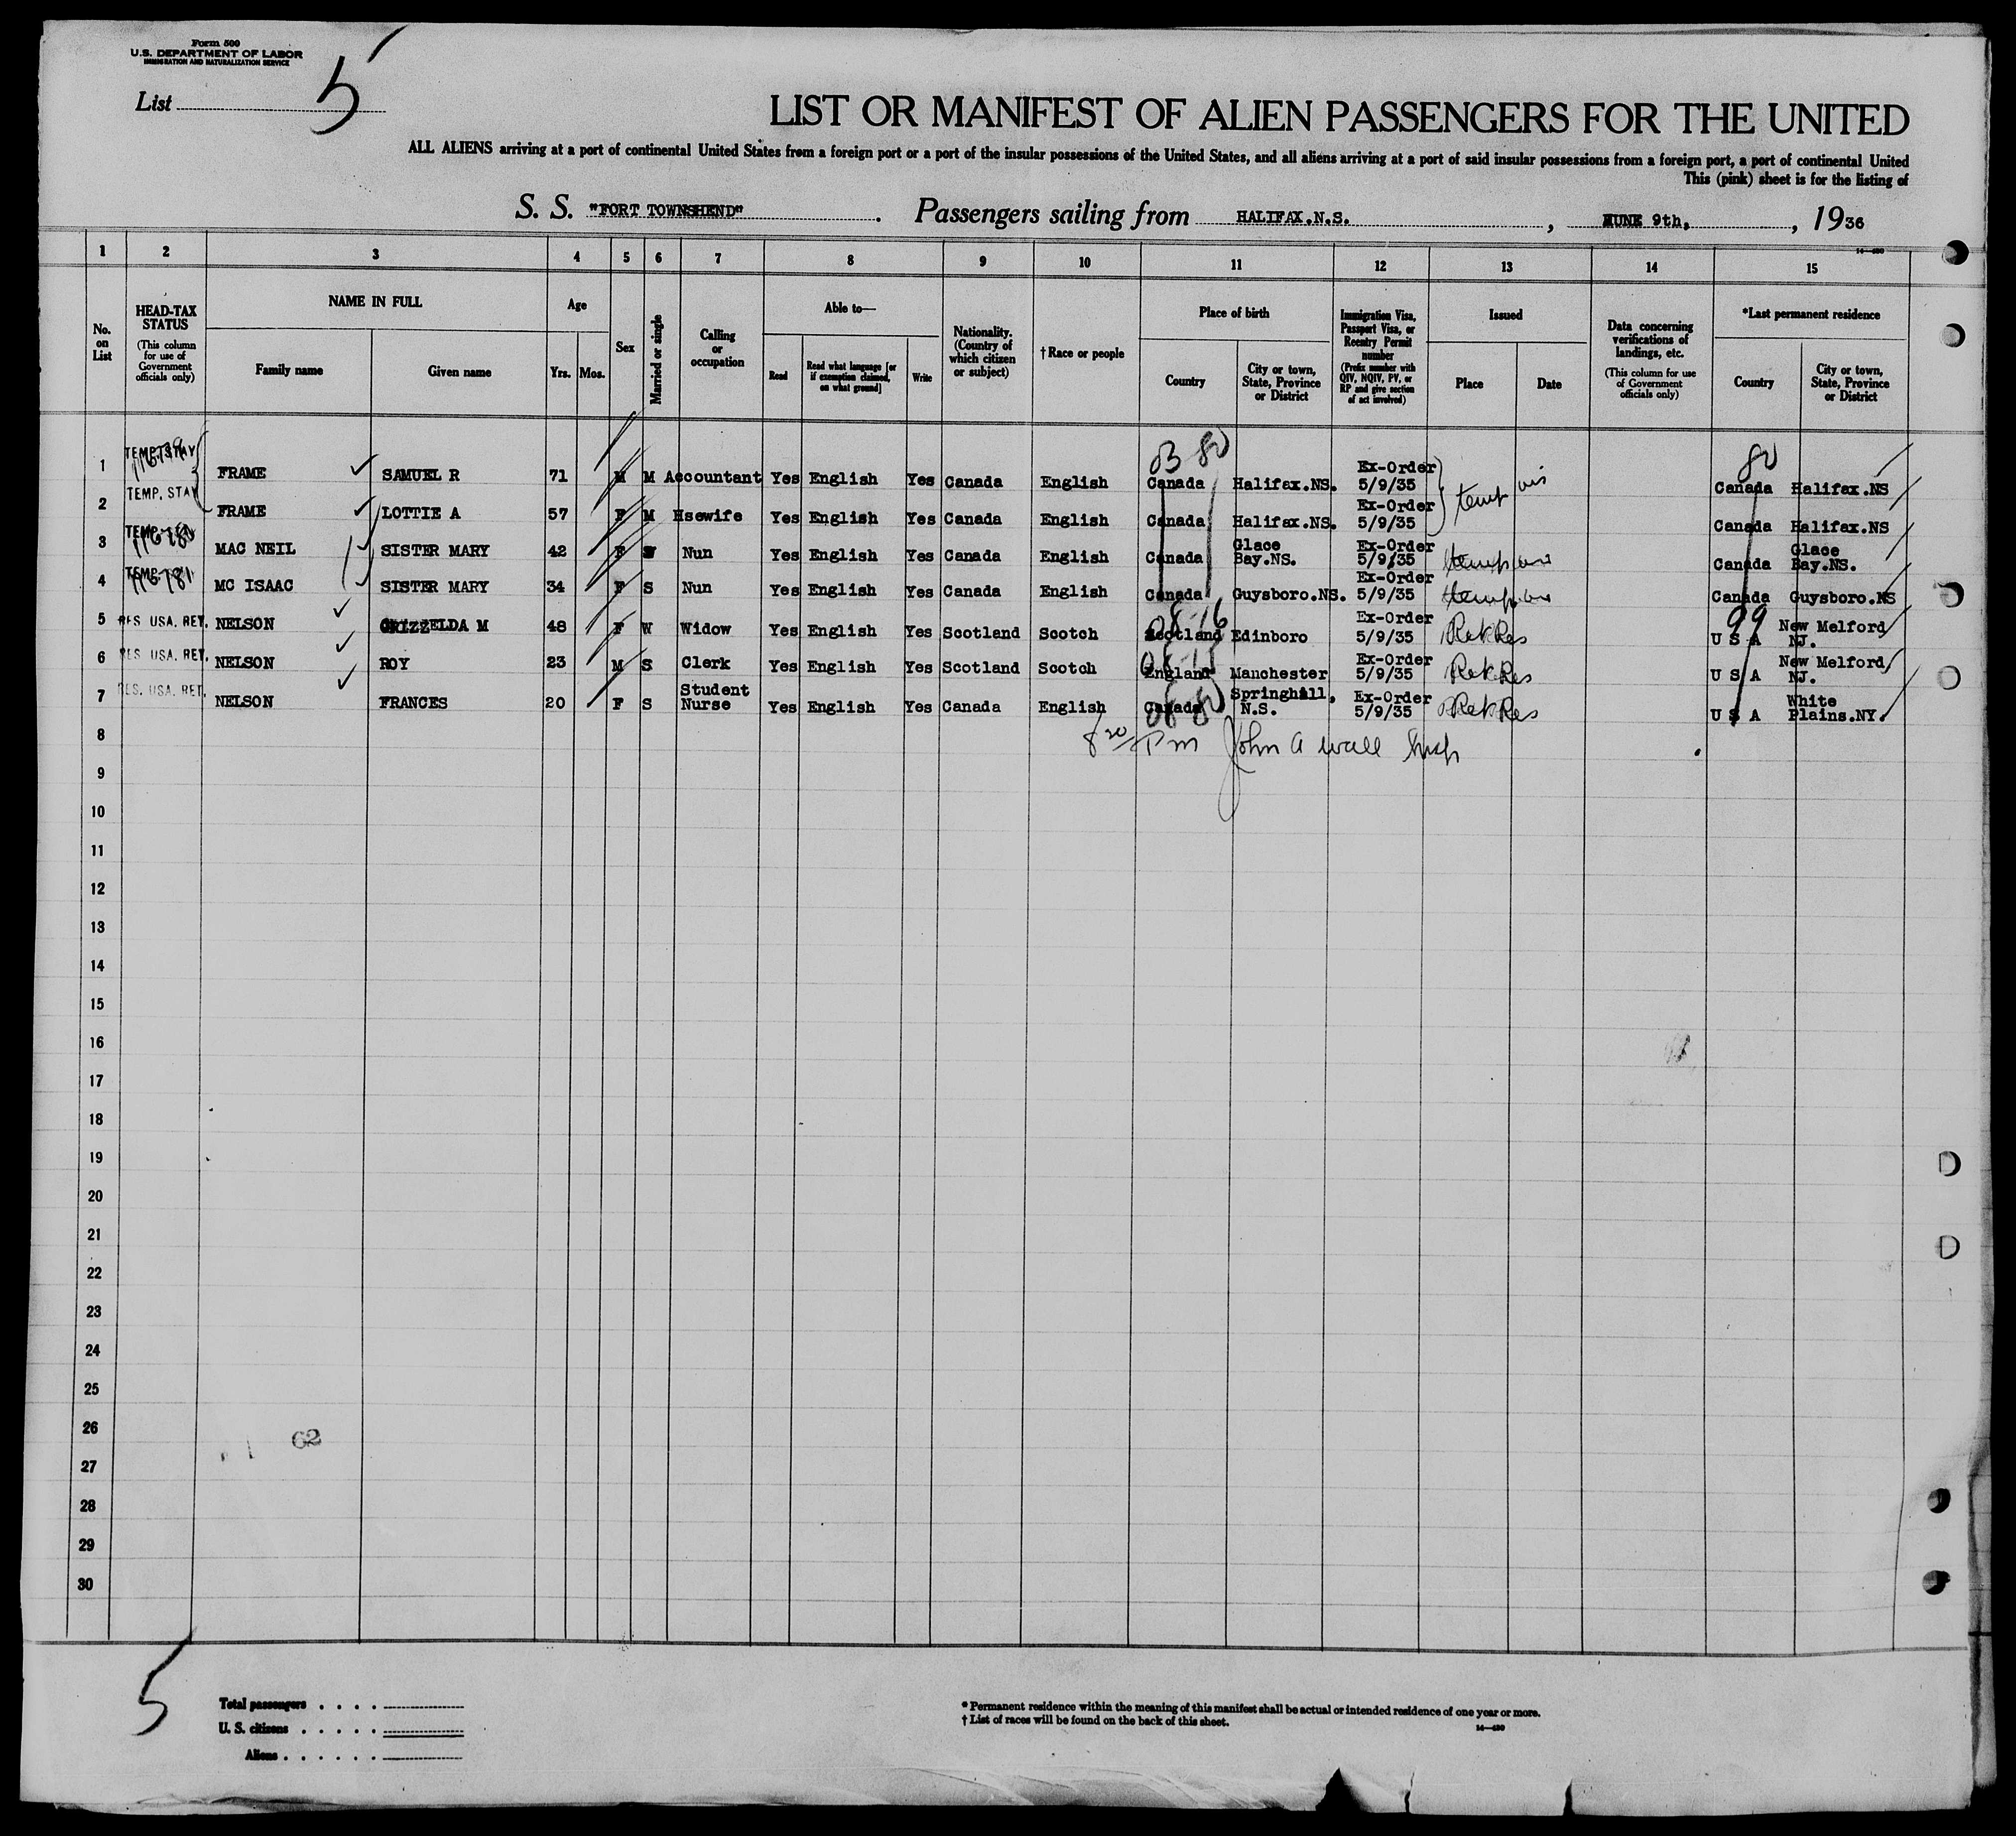 Form 500
U.S. DEPARTMENT OF LABOR
IMMIGRATION AND NATURALIZATION SERVICE
List 5
LIST OR MANIFEST OF ALIEN PASSENGERS FOR THE UNITED
ALL ALIENS arriving at a port of continental United States from a foreign port or a port of the insular possessions of the United States, and all aliens arriving at a port of said insular possessions from a foreign port, a port of continental United
This (pink) sheet is for the listing of
S. S. "FORT TOWNSHEND". Passengers sailing from HALIFAX.N.S., JUNE 9th, , 1936
1 2 3 4 5 6 7 8 9 10 11 12 13 14 15
No. on List
HEAD-TAX STATUS (This column for use of Government officials only)
NAME IN FULL
Family name
Given name
Age
Yrs. Mos.
Sex
Married or single
Calling or occupation
Able to—
Read
Read what language [or if exemption claimed, on what ground]
Write
Nationality. (Country of which citizen or subject)
† Race or people
Place of birth
Country
City or town, State, Province or District
Immigration Visa, Passport Visa, or Reentry Permit number (Prefix number with QIV, NQIV, PV, or RP and give section of act involved)
Issued
Place
Date
Data concerning verifications of landings, etc. (This column for use of Government officials only)
*Last permanent residence
Country
City or town, State, Province or District
03 80 80
1 TEMP. STAY FRAME SAMUEL R 71 M M Accountant Yes English Yes Canada English Canada Halifax.NS. Ex-Order 5/9/35 temp vis Canada Halifax.NS
2 TEMP. STAY FRAME LOTTIE A 57 F M Hsewife Yes English Yes Canada English Canada Halifax.NS. Ex-Order 5/9/35 Canada Halifax.NS
3 MAC NEIL SISTER MARY 42 F S Nun Yes English Yes Canada English Canada Glace Bay.NS. Ex-Order 5/9/35 temp vis Canada Glace Bay.NS.
4 116781 MC ISAAC SISTER MARY 34 F S Nun Yes English Yes Canada English Canada Guysboro.NS. Ex-Order 5/9/35 temp vis Canada Guysboro.NS
5 RES USA. RET. NELSON GRIZZELDA M 48 F W Widow Yes English Yes Scotland Scotch Scotland Edinboro Ex-Order 5/9/35 Ret Res 99 U S A New Melford NJ.
6 RES USA. RET. NELSON ROY 23 M S Clerk Yes English Yes Scotland Scotch England Manchester Ex-Order 5/9/35 Ret Res U S A New Melford NJ.
7 RES. USA. RET. NELSON FRANCES 20 F S Student Nurse Yes English Yes Canada English Canada Springhill, N.S. Ex-Order 5/9/35 Ret Res U S A White Plains.NY.
8 8 20 Pm John A Wall Insp
9
10
11
12
13
14
15
16
17
18
19
20
21
22
23
24
25
26
62
27
28
29
30
5
Total passengers . . . .
U. S. citizens . . . . .
Aliens . . . . . .
* Permanent residence within the meaning of this manifest shall be actual or intended residence of one year or more.
† List of races will be found on the back of this sheet.
14—480